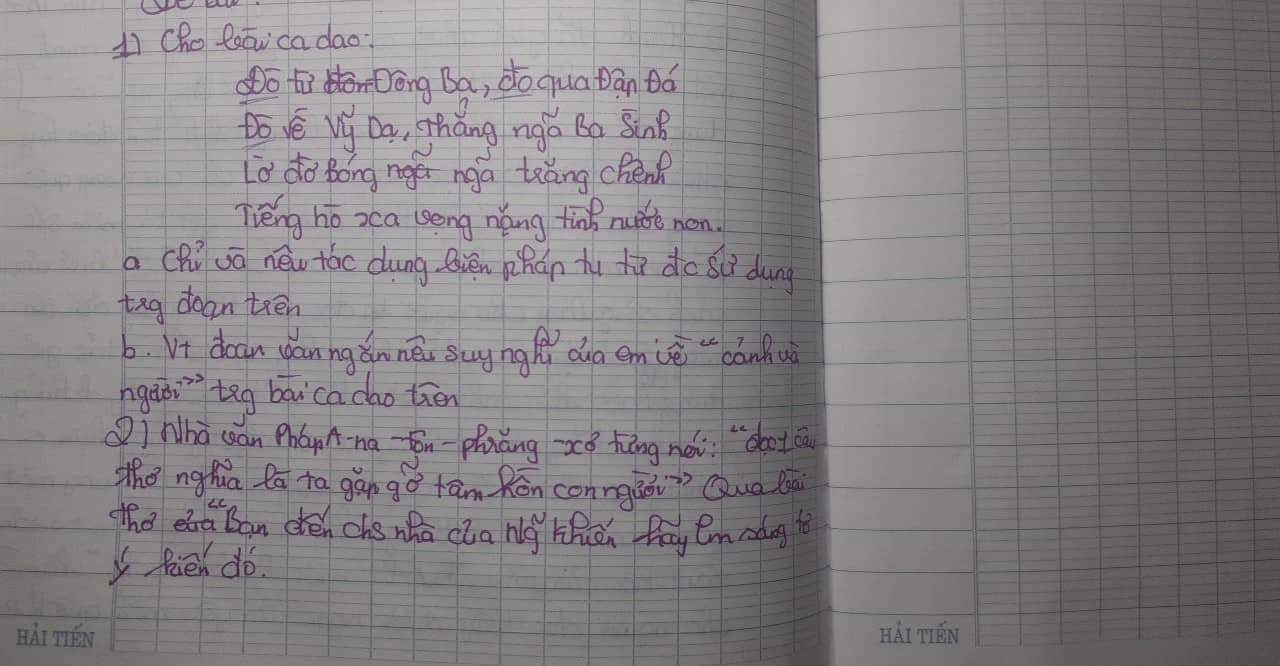 1) Cho bài ca dao:
Đò từ Đông Ba, đò qua Đập Đá
Đò về Vỹ Dạ, thẳng ngã Ba Sình
Lờ đờ bóng ngã ngã trăng chênh
Tiếng hò xa vọng nặng tình nước non.
a Chỉ và nêu tác dụng biện pháp tu từ đc sử dụng
trg đoạn trên
b. Vt đoạn văn ngắn nêu suy nghĩ của em về "cảnh và
người" trg bài ca dao trên
2) Nhà văn Pháp A-na-tôn-phrăng-xơ từng nói: "đọc 1 câu
thơ nghĩa là ta gặp gỡ tâm hồn con người" Qua bài
thơ "Bạn đến chs nhà của Ng Khuyến hãy làm sáng tỏ
ý kiến đó.
HẢI TIẾN
HẢI TIẾN